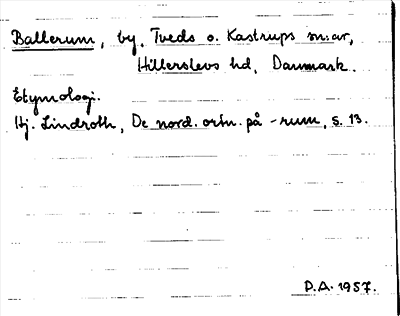 Ballerum, by, Tveds o. Kastrups sn:ar,
Hillerslevs hd, Danmark.
Etymologi.
Hj. Lindroth, De nord. ortn. på -rum, s. 13.
P.A. 1957.